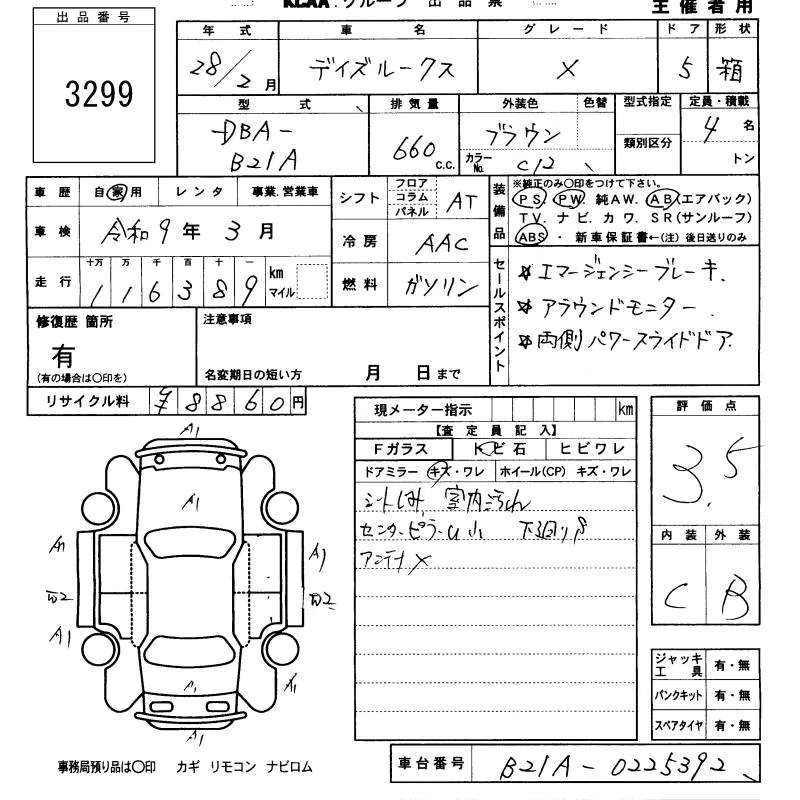 KCAA.グループ 出品票
主催者用
出品番号
3299
年式 車名 グレード ドア 形状
28/2月 デイズルークス X 5 箱
型式 排気量 外装色 色替 型式指定 定員・積載
DBA-
B21A
660 c.c.
ブラウン
カラーNo. C12
類別区分
4名
トン
車歴 自家用 レンタ 事業.営業車
車検 令和9年3月
走行 十万 万 千 百 十 一
116389 km マイル
シフト フロア コラム パネル AT
冷房 AAC
燃料 ガソリン
装備品
※純正のみ○印をつけて下さい。
PS PW 純AW. AB(エアバック)
TV. ナビ. カワ. SR(サンルーフ)
ABS・新車保証書←(注)後日送りのみ
セールスポイント
☆エマージェンシーブレーキ.
☆アラウンドモニター.
☆両側パワースライドドア.
修復歴 箇所
有
(有の場合は○印を)
注意事項
名変期日の短い方 月 日まで
リサイクル料 ¥8860円
現メーター指示 km
【査定員記入】
Fガラス トビ石 ヒビワレ
ドアミラー キズ・ワレ ホイール(CP) キズ・ワレ
シートしみ 室内汚れ
センターピラーU小 下回りS
アンテナX
評価点
3.5
内装 外装
C B
A1
A1
A1 A1
A1 A1
A1
A1
ジャッキ工具 有・無
パンクキット 有・無
スペアタイヤ 有・無
事務局預り品は○印 カギ リモコン ナビロム
車台番号 B21A-0225392